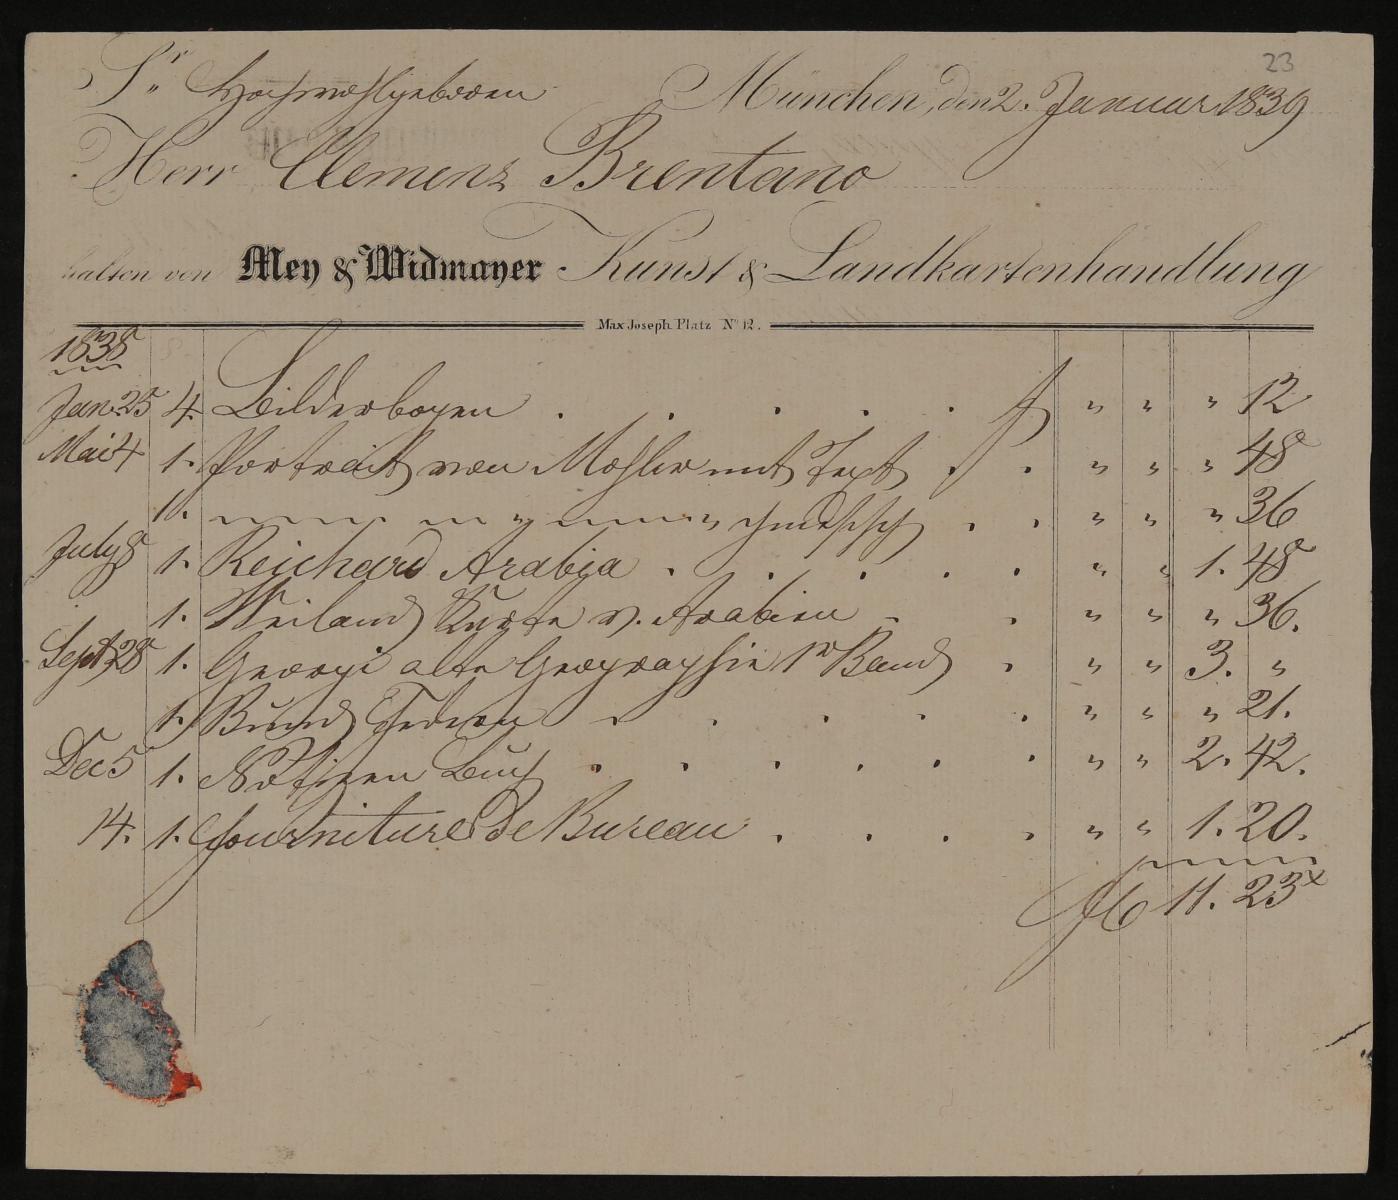 23
Sr Hochwohlgeboren München, den 2. Januar 1839
Herr Clemens Brentano
halten von Mey & Widmayer Kunst & Landkartenhandlung
Max Joseph Platz No 12.
1838
Jan 25 4. Bilderbogen . . . . . f " " " 12
Mai 4 1. Portrait von Möhler mit Text . . " " " 48
1. " " . . " " " 36
July 8 1. Reichard Arabia . . . . . " " 1. 48
1. Weiland Karte v. Arabien . . " " " 36.
Sept 28 1. Georgi alte Geographie 1r Band . " " 3. "
1. Bund Federn . . . . . " " " 21.
Dec 5 1. Notizen Buch . . . . . . " " 2. 42.
14. 1. fournitures de Bureau . . . . " " 1. 20.
f 11. 23x